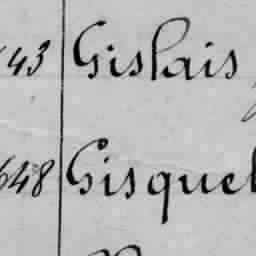 43 Gislais
648 Gisquel